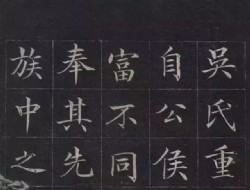 吳氏重
自公侯
富不同
奉其先
族中之